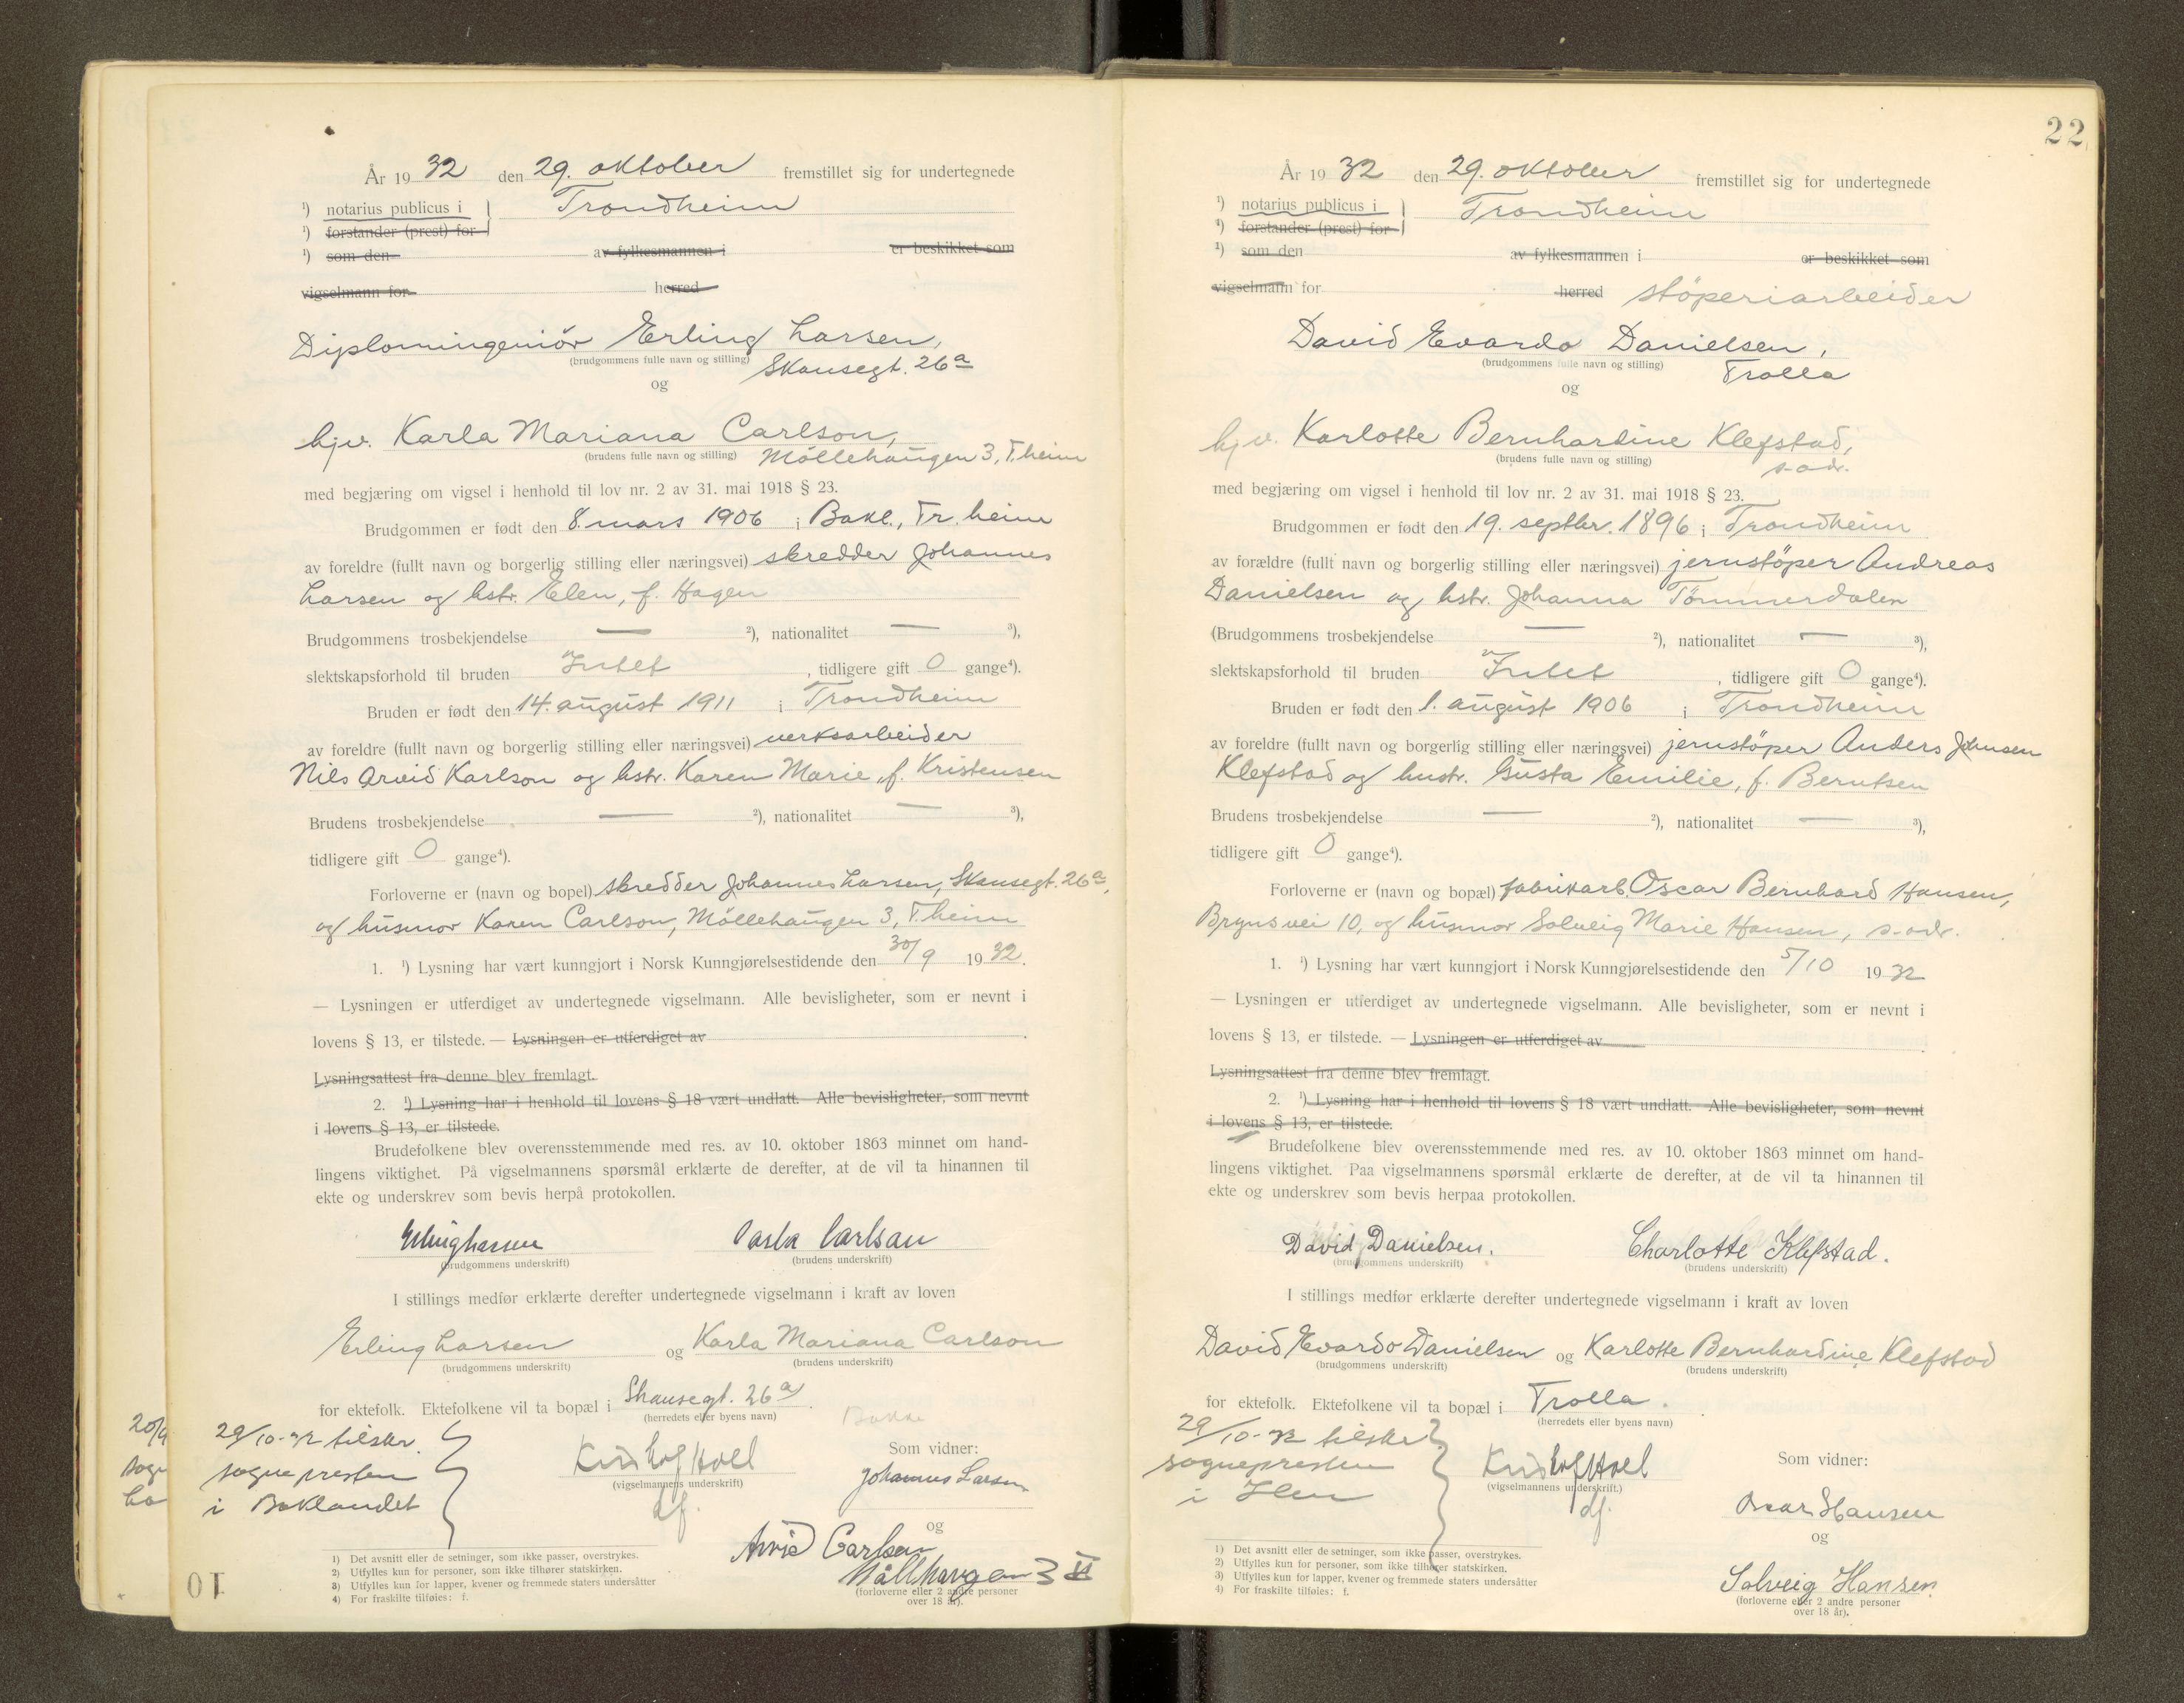 År 1932 den 29. oktober fremstillet sig for undertegnede
¹) notarius publicus i Trondheim
¹) forstander (prest) for
¹) som den av fylkesmannen i er beskikket som
vigselmann for herred
Diplomingeniör Erling Larsen,
(brudgommens fulle navn og stilling) Skansegt. 26a
og
hjv. Karla Mariana Carlson,
(brudens fulle navn og stilling) Möllehaugen 3, T.heim
med begjæring om vigsel i henhold til lov nr. 2 av 31. mai 1918 § 23.
Brudgommen er født den 8. mars 1906 i Bakl., Tr.heim
av foreldre (fullt navn og borgerlig stilling eller næringsvei) skredder Johannes
Larsen og hstr. Elen, f. Hagen
Brudgommens trosbekjendelse — ²), nationalitet — ³),
slektskapsforhold til bruden Intet, tidligere gift 0 gange⁴).
Bruden er født den 14. august 1911 i Trondheim
av foreldre (fullt navn og borgerlig stilling eller næringsvei) verksarbeider
Nils Arvid Karlson og hstr. Karen Marie, f. Kristensen
Brudens trosbekjendelse — ²), nationalitet — ³),
tidligere gift 0 gange⁴).
Forloverne er (navn og bopel) skredder Johannes Larsen, Skansegt. 26a,
og husmor Karen Carlson, Möllehaugen 3, T.heim
1. ¹) Lysning har vært kunngjort i Norsk Kunngjørelsestidende den 30/9 1932.
— Lysningen er utferdiget av undertegnede vigselmann. Alle bevisligheter, som er nevnt i
lovens § 13, er tilstede. — Lysningen er utferdiget av
Lysningsattest fra denne blev fremlagt.
2. ¹) Lysning har i henhold til lovens § 18 vært undlatt. Alle bevisligheter, som nevnt
i lovens § 13, er tilstede.
Brudefolkene blev overensstemmende med res. av 10. oktober 1863 minnet om hand-
lingens viktighet. På vigselmannens spørsmål erklærte de derefter, at de vil ta hinannen til
ekte og underskrev som bevis herpå protokollen.
Erling Larsen Carla Carlson
(brudgommens underskrift) (brudens underskrift)
I stillings medfør erklærte derefter undertegnede vigselmann i kraft av loven
Erling Larsen og Karla Mariana Carlson
(brudgommens underskrift) (brudens underskrift)
for ektefolk. Ektefolkene vil ta bopæl i Skansegt. 26a.
(herredets eller byens navn) Bakke
29/10-32 tilskr.
sognepresten
i Baklandet
Kristof Hoel
(vigselmannens underskrift)
df.
Som vidner:
Johannes Larsen
og
Arvid Carlson
Möllhaugen 3 VI
(forloverne eller 2 andre personer
over 18 år).
1) Det avsnitt eller de setninger, som ikke passer, overstrykes.
2) Utfylles kun for personer, som ikke tilhører statskirken.
3) Utfylles kun for lapper, kvener og fremmede staters undersåtter
4) For fraskilte tilføies: f.
20/9
sogn
La
22
År 1932 den 29. oktober fremstillet sig for undertegnede
¹) notarius publicus i Trondheim
¹) forstander (prest) for
¹) som den av fylkesmannen i er beskikket som
vigselmann for herred støperiarbeider
David Evardo Danielsen,
(brudgommens fulle navn og stilling) Trolla
og
hjv. Karlotte Bernhardine Klefstad,
(brudens fulle navn og stilling) s-adr.
med begjæring om vigsel i henhold til lov nr. 2 av 31. mai 1918 § 23.
Brudgommen er født den 19. septbr. 1896 i Trondheim
av forældre (fullt navn og borgerlig stilling eller næringsvei) jernstöper Andreas
Danielsen og hstr. Johanna Tömmerdalen
(Brudgommens trosbekjendelse — ²), nationalitet — ³),
slektskapsforhold til bruden Intet, tidligere gift 0 gange⁴).
Bruden er født den 1. august 1906 i Trondheim
av foreldre (fullt navn og borgerlig stilling eller næringsvei) jernstöper Anders Johnsen
Klefstad og hustr. Gusta Emilie, f. Berntsen
Brudens trosbekjendelse — ²), nationalitet — ³),
tidligere gift 0 gange⁴).
Forloverne er (navn og bopæl) fabrikarb. Oscar Bernhard Hansen,
Bryns vei 10, og husmor Solveig Marie Hansen, s-adr.
1. ¹) Lysning har vært kunngjort i Norsk Kunngjørelsestidende den 5/10 1932
— Lysningen er utferdiget av undertegnede vigselmann. Alle bevisligheter, som er nevnt i
lovens § 13, er tilstede. — Lysningen er utferdiget av
Lysningsattest fra denne blev fremlagt.
2. ¹) Lysning har i henhold til lovens § 18 vært undlatt. Alle bevisligheter, som nevnt
i lovens § 13, er tilstede.
Brudefolkene blev overensstemmende med res. av 10. oktober 1863 minnet om hand-
lingens viktighet. Paa vigselmannens spørsmål erklærte de derefter, at de vil ta hinannen til
ekte og underskrev som bevis herpaa protokollen.
David Danielsen. Charlotte Klefstad.
(brudgommens underskrift) (brudens underskrift)
I stillings medfør erklærte derefter undertegnede vigselmann i kraft av loven
David Evardo Danielsen og Karlotte Bernhardine Klefstad
(brudgommens underskrift) (brudens underskrift)
for ektefolk. Ektefolkene vil ta bopæl i Trolla.
(herredets eller byens navn)
29/10-32 tilskr.
sognepresten
i Ilen
Kristof Hoel
(vigselmannens underskrift.)
df.
Som vidner:
Oscar Hansen
og
Solveig Hansen
(forloverne eller 2 andre personer
over 18 år).
1) Det avsnitt eller de setninger, som ikke passer, overstrykes.
2) Utfylles kun for personer, som ikke tilhører statskirken.
3) Utfylles kun for lapper, kvener og fremmede staters undersåtter
4) For fraskilte tilføies: f.